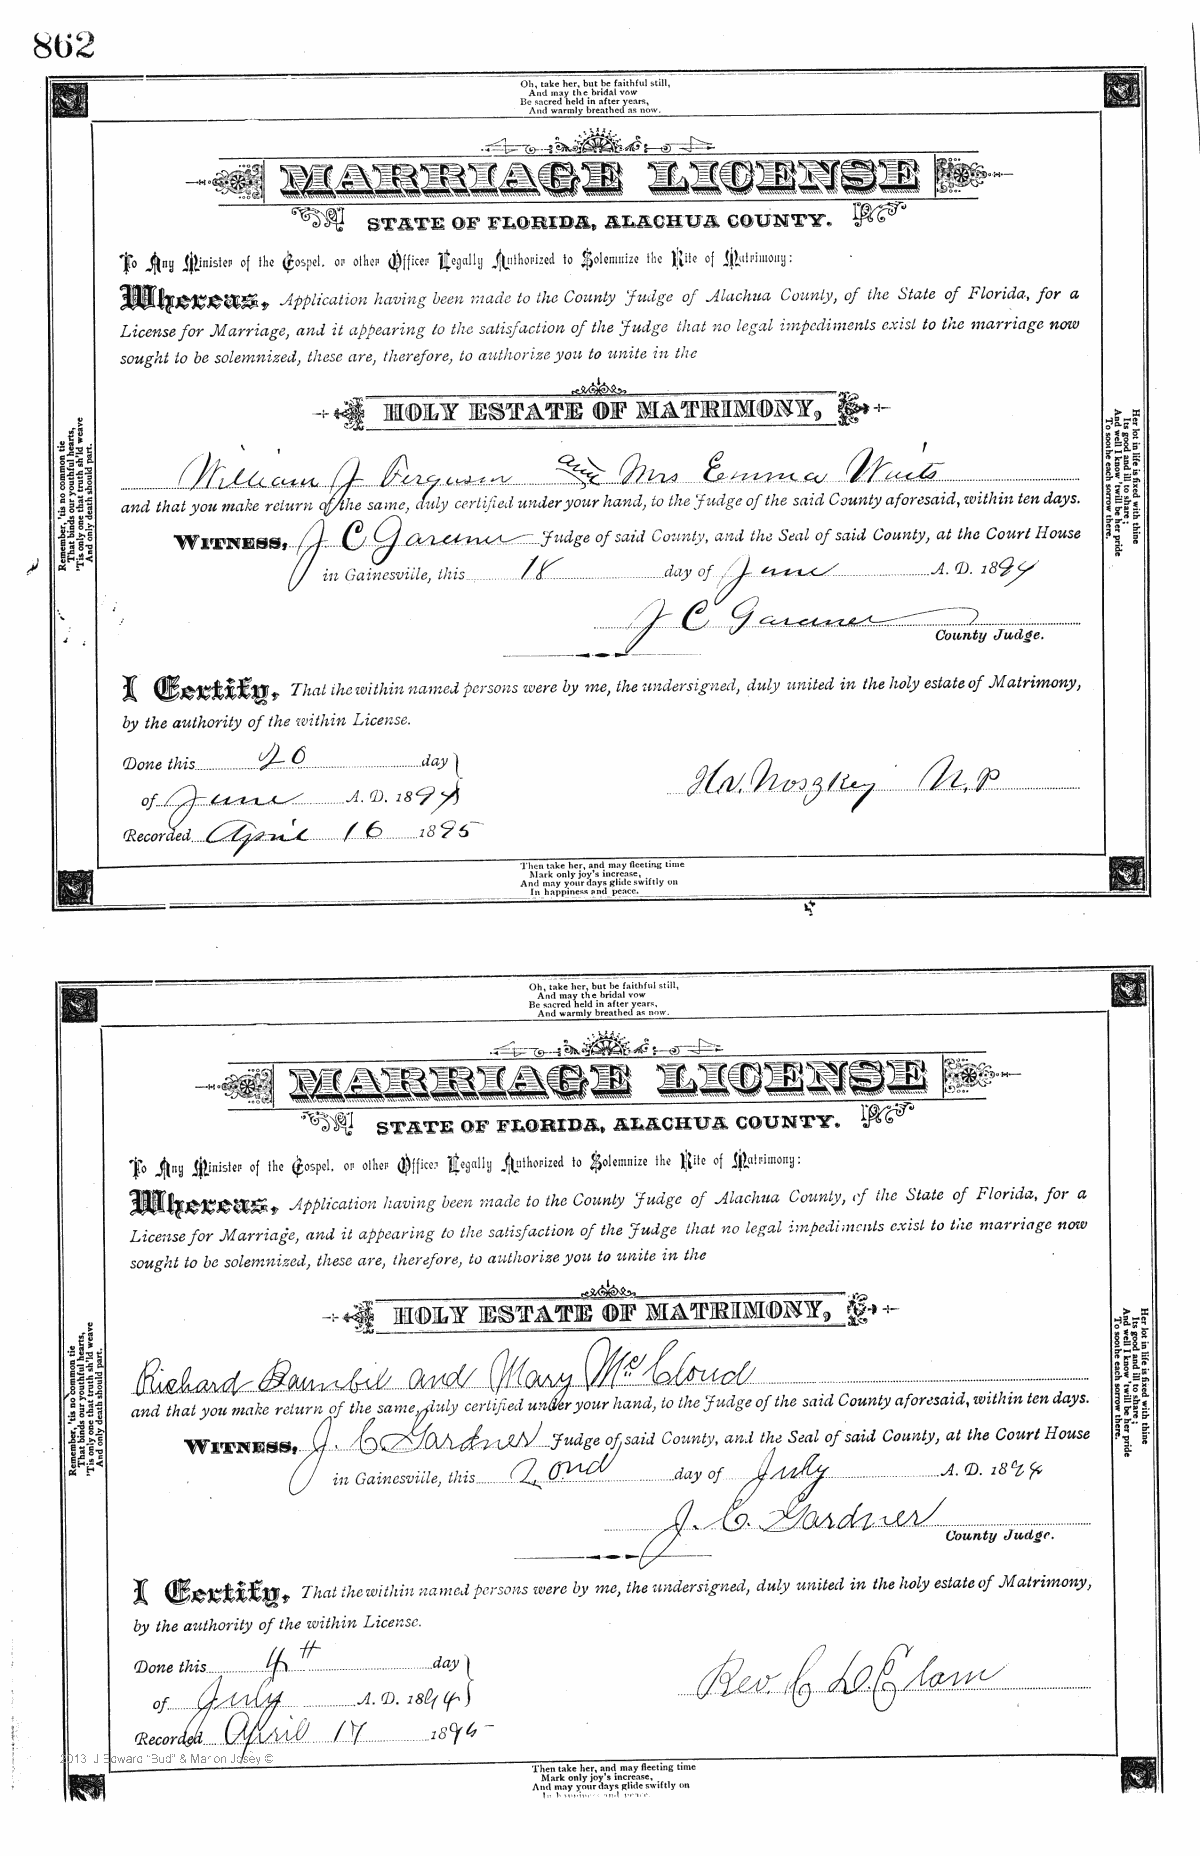 862
Oh, take her, but be faithful still,
And may the bridal vow
Be sacred held in after years,
And warmly breathed as now.
MARRIAGE LICENSE
STATE OF FLORIDA, ALACHUA COUNTY.
To Any Minister of the Gospel, or other Officer Legally Authorized to Solemnize the Rite of Matrimony:
Whereas, Application having been made to the County Judge of Alachua County, of the State of Florida, for a
License for Marriage, and it appearing to the satisfaction of the Judge that no legal impediments exist to the marriage now
sought to be solemnized, these are, therefore, to authorize you to unite in the
HOLY ESTATE OF MATRIMONY,
William J Ferguson and Mrs Emma Waits
and that you make return of the same, duly certified under your hand, to the Judge of the said County aforesaid, within ten days.
WITNESS, J C Gardner Judge of said County, and the Seal of said County, at the Court House
in Gainesville, this 18 day of June A. D. 1894
J C Gardner
County Judge.
I Certify, That the within named persons were by me, the undersigned, duly united in the holy estate of Matrimony,
by the authority of the within License.
Done this 20 day
of June A. D. 1894
N.P
Recorded April 16 1895
Remember, 'tis no common tie
That binds our youthful hearts,
'Tis only one that truth sh'ld weave
And only death should part.
Her lot in life is fixed with thine
Its good and ill to share;
And well I know 'twill be her pride
To soothe each sorrow there.
Then take her, and may fleeting time
Mark only joy's increase,
And may your days glide swiftly on
In happiness and peace.
Oh, take her, but be faithful still,
And may the bridal vow
Be sacred held in after years,
And warmly breathed as now.
MARRIAGE LICENSE
STATE OF FLORIDA, ALACHUA COUNTY.
To Any Minister of the Gospel, or other Officer Legally Authorized to Solemnize the Rite of Matrimony:
Whereas, Application having been made to the County Judge of Alachua County, of the State of Florida, for a
License for Marriage, and it appearing to the satisfaction of the Judge that no legal impediments exist to the marriage now
sought to be solemnized, these are, therefore, to authorize you to unite in the
HOLY ESTATE OF MATRIMONY,
Richard and Mary McCloud
and that you make return of the same, duly certified under your hand, to the Judge of the said County aforesaid, within ten days.
WITNESS, J. C Gardner Judge of said County, and the Seal of said County, at the Court House
in Gainesville, this 2ond day of July A. D. 1894
J. C. Gardner
County Judge.
I Certify, That the within named persons were by me, the undersigned, duly united in the holy estate of Matrimony,
by the authority of the within License.
Done this 4th day
of July A. D. 1894
Rev. C D. Elam
Recorded April 17 1895
Remember, 'tis no common tie
That binds our youthful hearts,
'Tis only one that truth sh'ld weave
And only death should part.
Her lot in life is fixed with thine
Its good and ill to share;
And well I know 'twill be her pride
To soothe each sorrow there.
2013 J Edward "Bud" & Marion Josey ©
Then take her, and may fleeting time
Mark only joy's increase,
And may your days glide swiftly on
In happiness and peace.